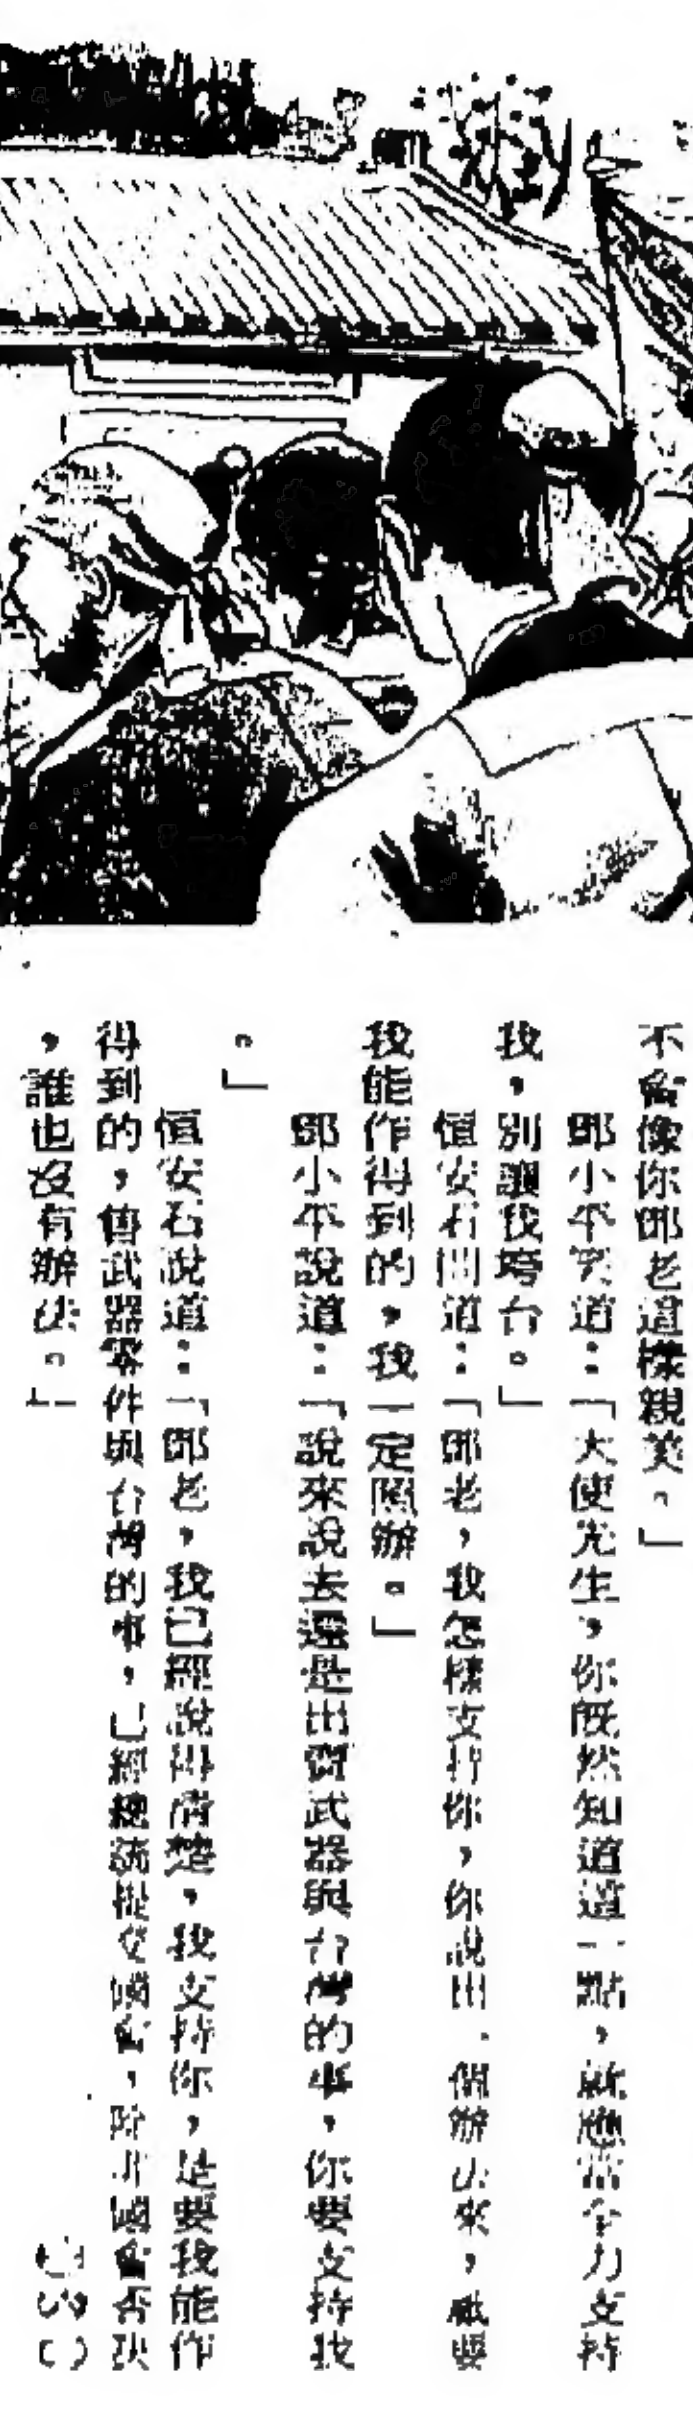 不會像你鄧老這樣親美。」
鄧小平笑道：「大使先生，你既然知道這一點，就應當全力支持
我，別讓我垮台。」
恒安石問道：「鄧老，我怎樣支持你，你說出一個辦法來，祇要
我能作得到的，我一定照辦。」
鄧小平說道：「說來說去還是出賣武器與台灣的事，你要支持我
。」
恒安石說道：「鄧老，我已經說得清楚，我支持你，是要我能作
得到的，售武器零件與台灣的事，已經總統提交國會，除非國會否決
，誰也沒有辦法。」